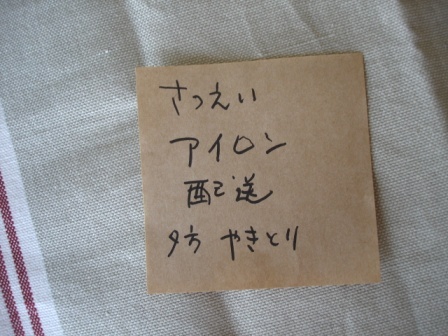 さつえい
アイロン
配送
夕方 やきとり